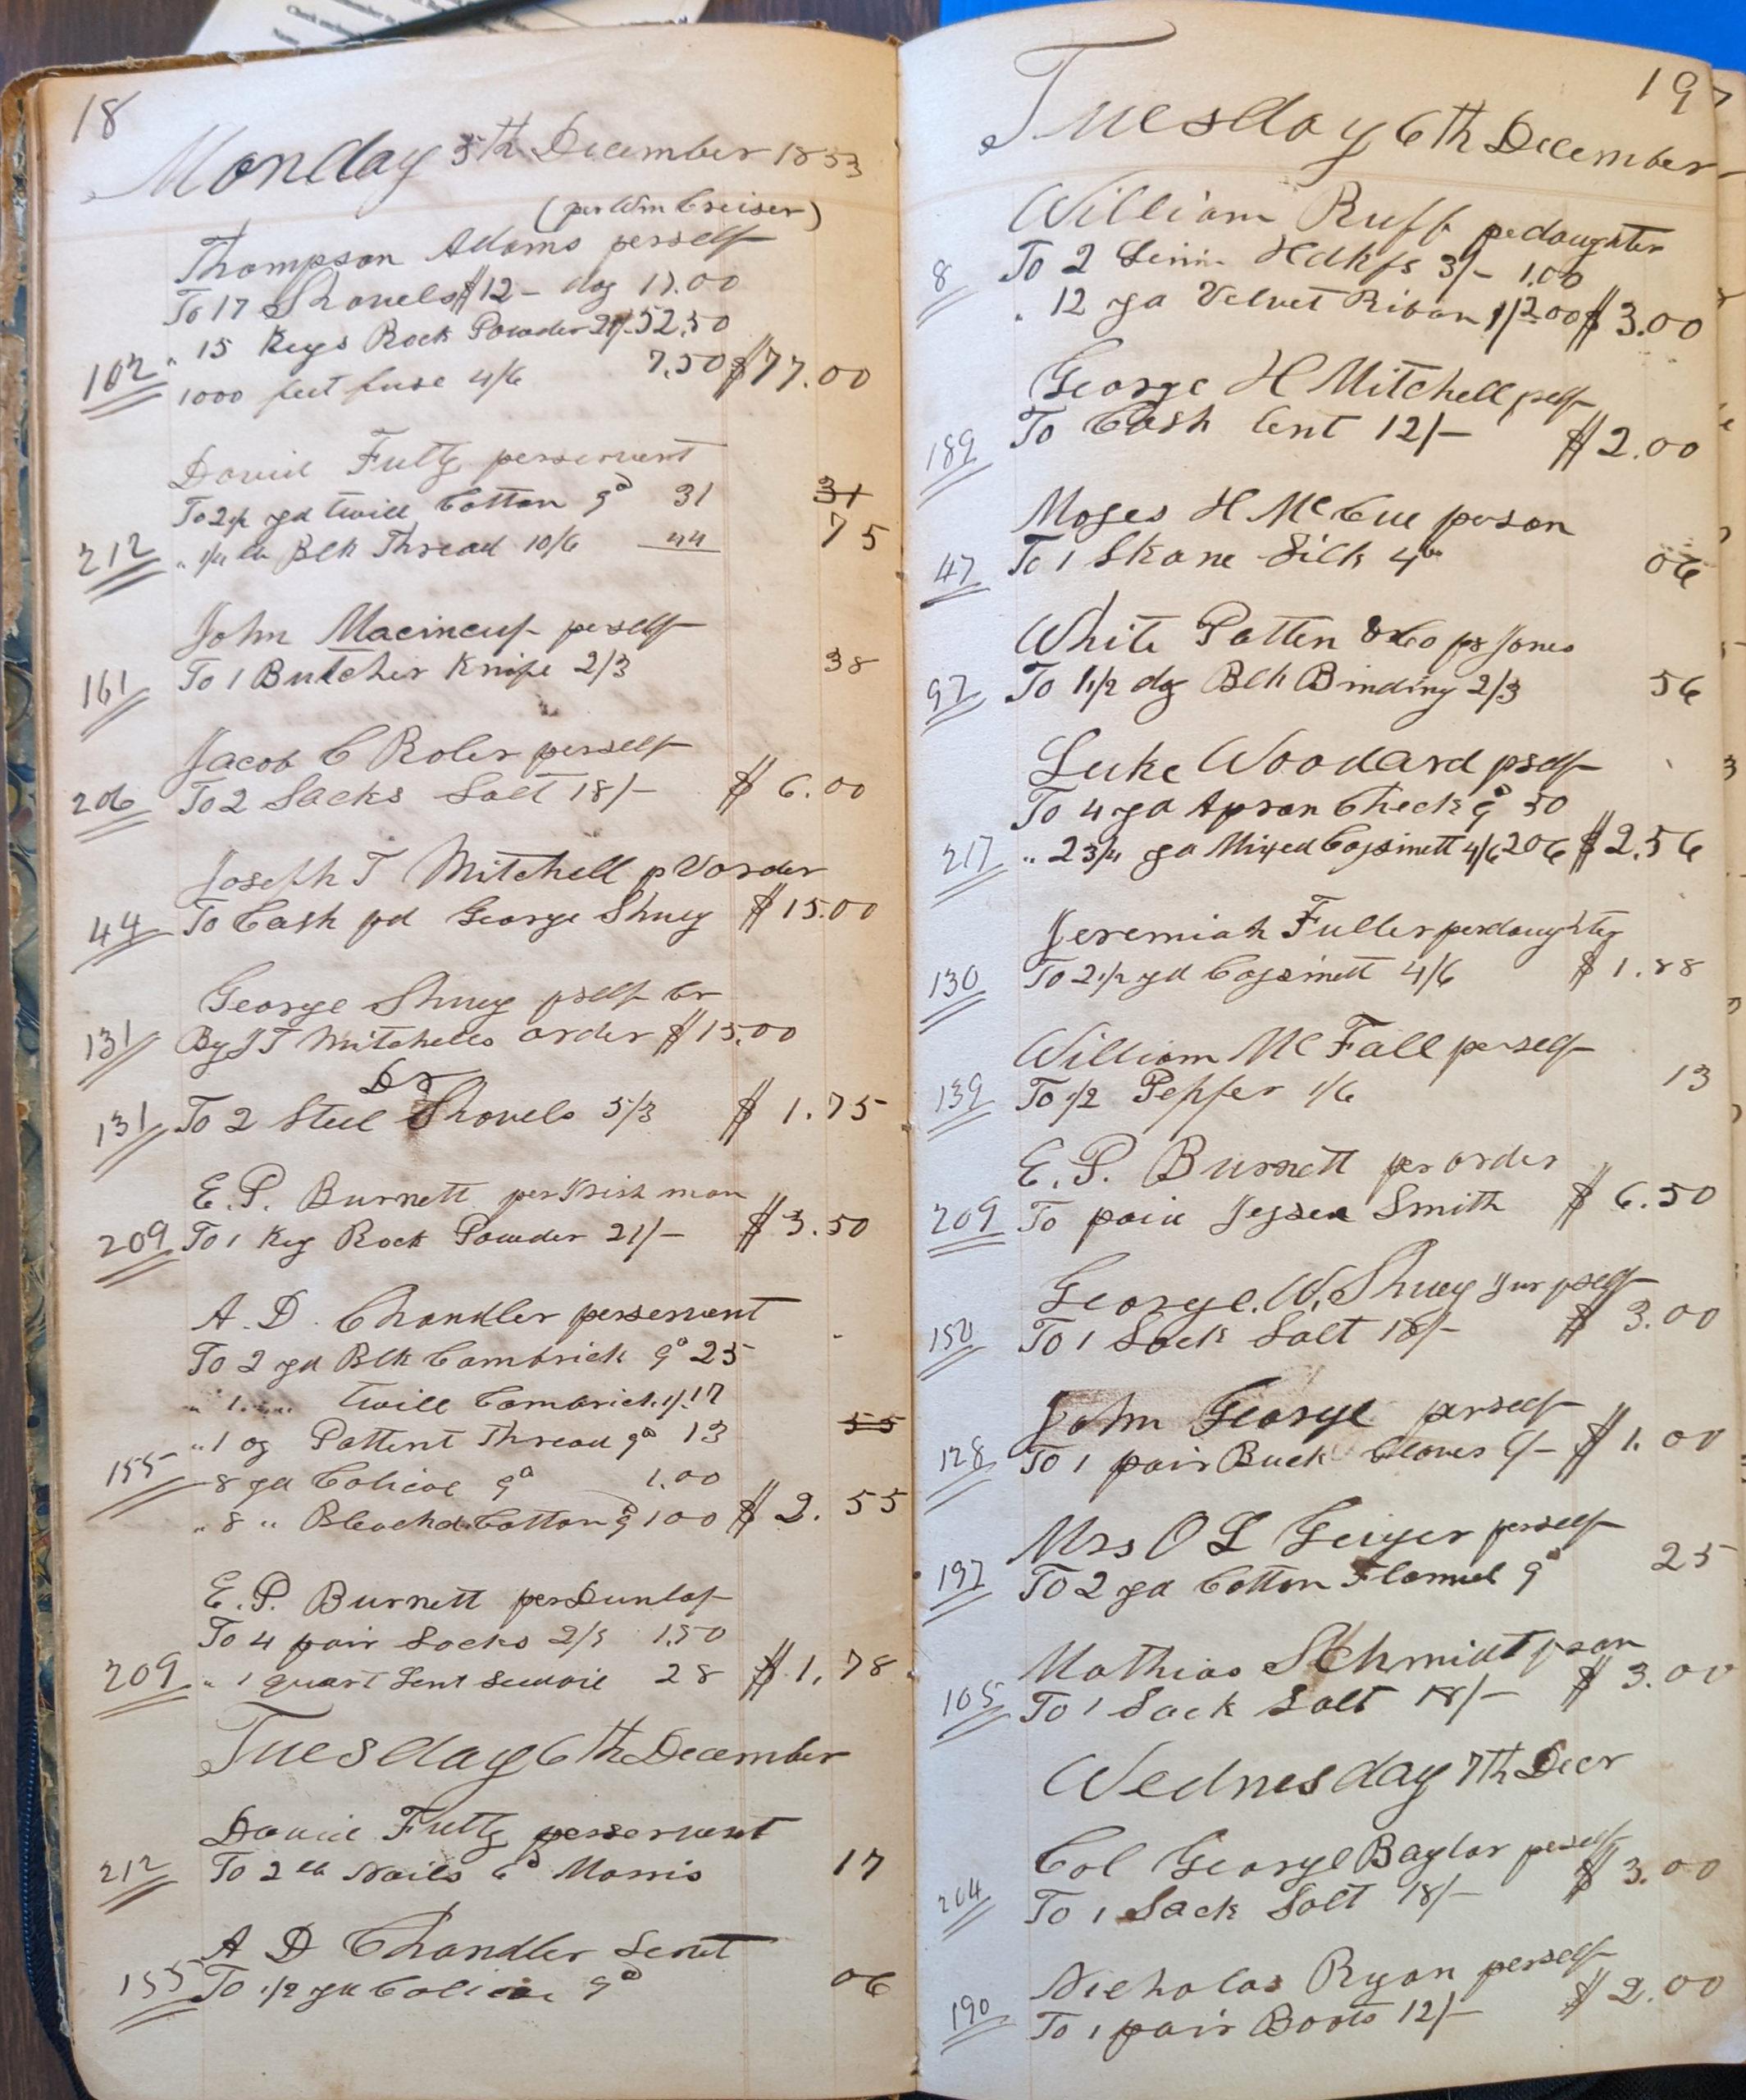 18
Monday 5th December 1853
(per Wm Creiser)
Thompson Adams perself
To 17 Shovels $12 - doz 17.00
" 15 Kegs Rock Powder 21/- 52.50
102 1000 feet fuse 4/6 7.50 $77.00
David Fultz perservent
To 2 1/2 yd twill Cotton 9d 31 31
212 " 1/4 lb Blk Thread 10/6 44 75
John perself
161 To 1 Butcher Knife 2/3 38
Jacob C Roler perself
206 To 2 Sacks Salt 18/- $ 6.00
Joseph T Mitchell p Vorder
44 To Cash pd George Shuey $ 15.00
George Shuey pself Cr
131 By J T Mitchells order $ 15.00
Dr
131 To 2 Steel Shovels 5/3 $ 1.75
E. P. Burnett per Irish man
209 To 1 Keg Rock Powder 21/- $ 3.50
A. D. Chandler perservent
To 2 yd Blk Cambrick 9d 25
" 1 twill Cambrick 1/ 17
" 1 oz Pattent Thread 9d 13 55
155 8 yd Calicoe 9d 1.00
" 8 " Bleachd Cotton 9d 100 $ 2.55
E. P. Burnett per Dunlap
To 4 pair Socks 2/3 1.50
209 " 1 quart 28 $ 1.78
Tuesday 6th December
David Fultz perservent
212 To 2 lb Nails 6d Morris 17
A D Chandler Servt
155 To 1/2 yd Calicoe 9d 06
19
Tuesday 6th December
William Ruff pe daughter
8 To 2 Linin Hdkfs 3/- 1.00
" 12 yd Velvet Riban 1/ 2.00 $ 3.00
George H Mitchell pself
189 To Cash lent 12/- $ 2.00
Moses H McCue person
47 To 1 Skane Silk 06
White Patten & Co pr Jones
97 To 1 1/2 dz Blk Binding 2/3 56
Luke Woodard pself
To 4 yd Apron Check 9d 50
217 " 2 3/4 yd Mixed Cassinett 4/6 206 $ 2.56
Jeremiah Fuller perdaughter
130 To 2 1/2 yd Cassinett 4/6 $ 1.88
William McFall perself
139 To 1/2 Pepper 1/6 13
E. P. Burnett per order
209 To paid Jessea Smith $ 6.50
George. W. Shuey Jur pself
150 To 1 Sack Salt 18/- $ 3.00
John George perself
128 To 1 pair Buck Gloves 6/- $ 1.00
Mrs O L Geiger perself
197 To 2 yd Cotton Flannel 9d 25
Mathias Schmidt pson
105 To 1 Sack Salt 18/- $ 3.00
Wednesday 7th Decr
Col George Baylor perself
204 To 1 Sack Salt 18/- $ 3.00
Nicholas Ryan perself
190 To 1 pair Boots 12/- $ 2.00